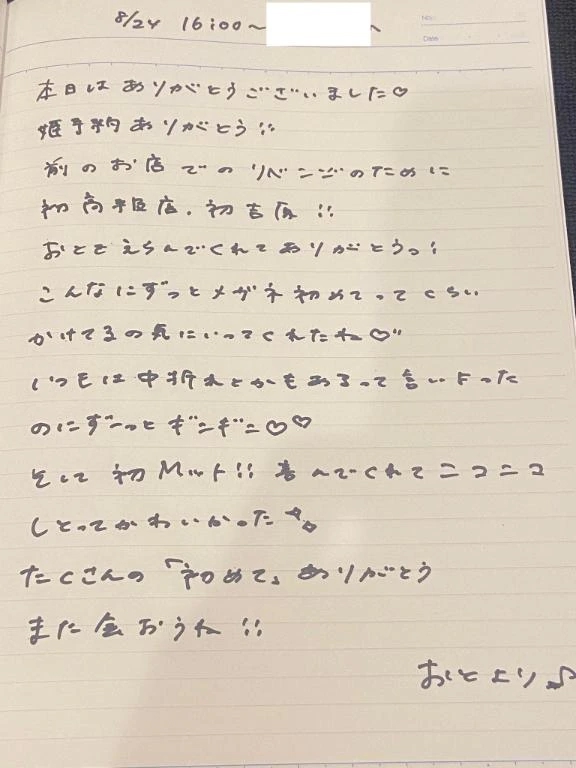 8/24 16:00~ へ
No.
Date
本日はありがとうございました♡
姫予約ありがとう!!
前のお店でのリベンジのために
初高級店、初吉原!!
おとをえらんでくれてありがとうっ!
こんなにずっとメガネ初めてってくらい
かけてるの気にいってくれたね♡"
いつもは中折れとかもあるって言いよった
のにずーっとギンギン♡♡
そして初Mット!! 喜んでくれてニコニコ
しとってかわいかった
たくさんの「初めて」ありがとう
また会おうね!!
おとより♪